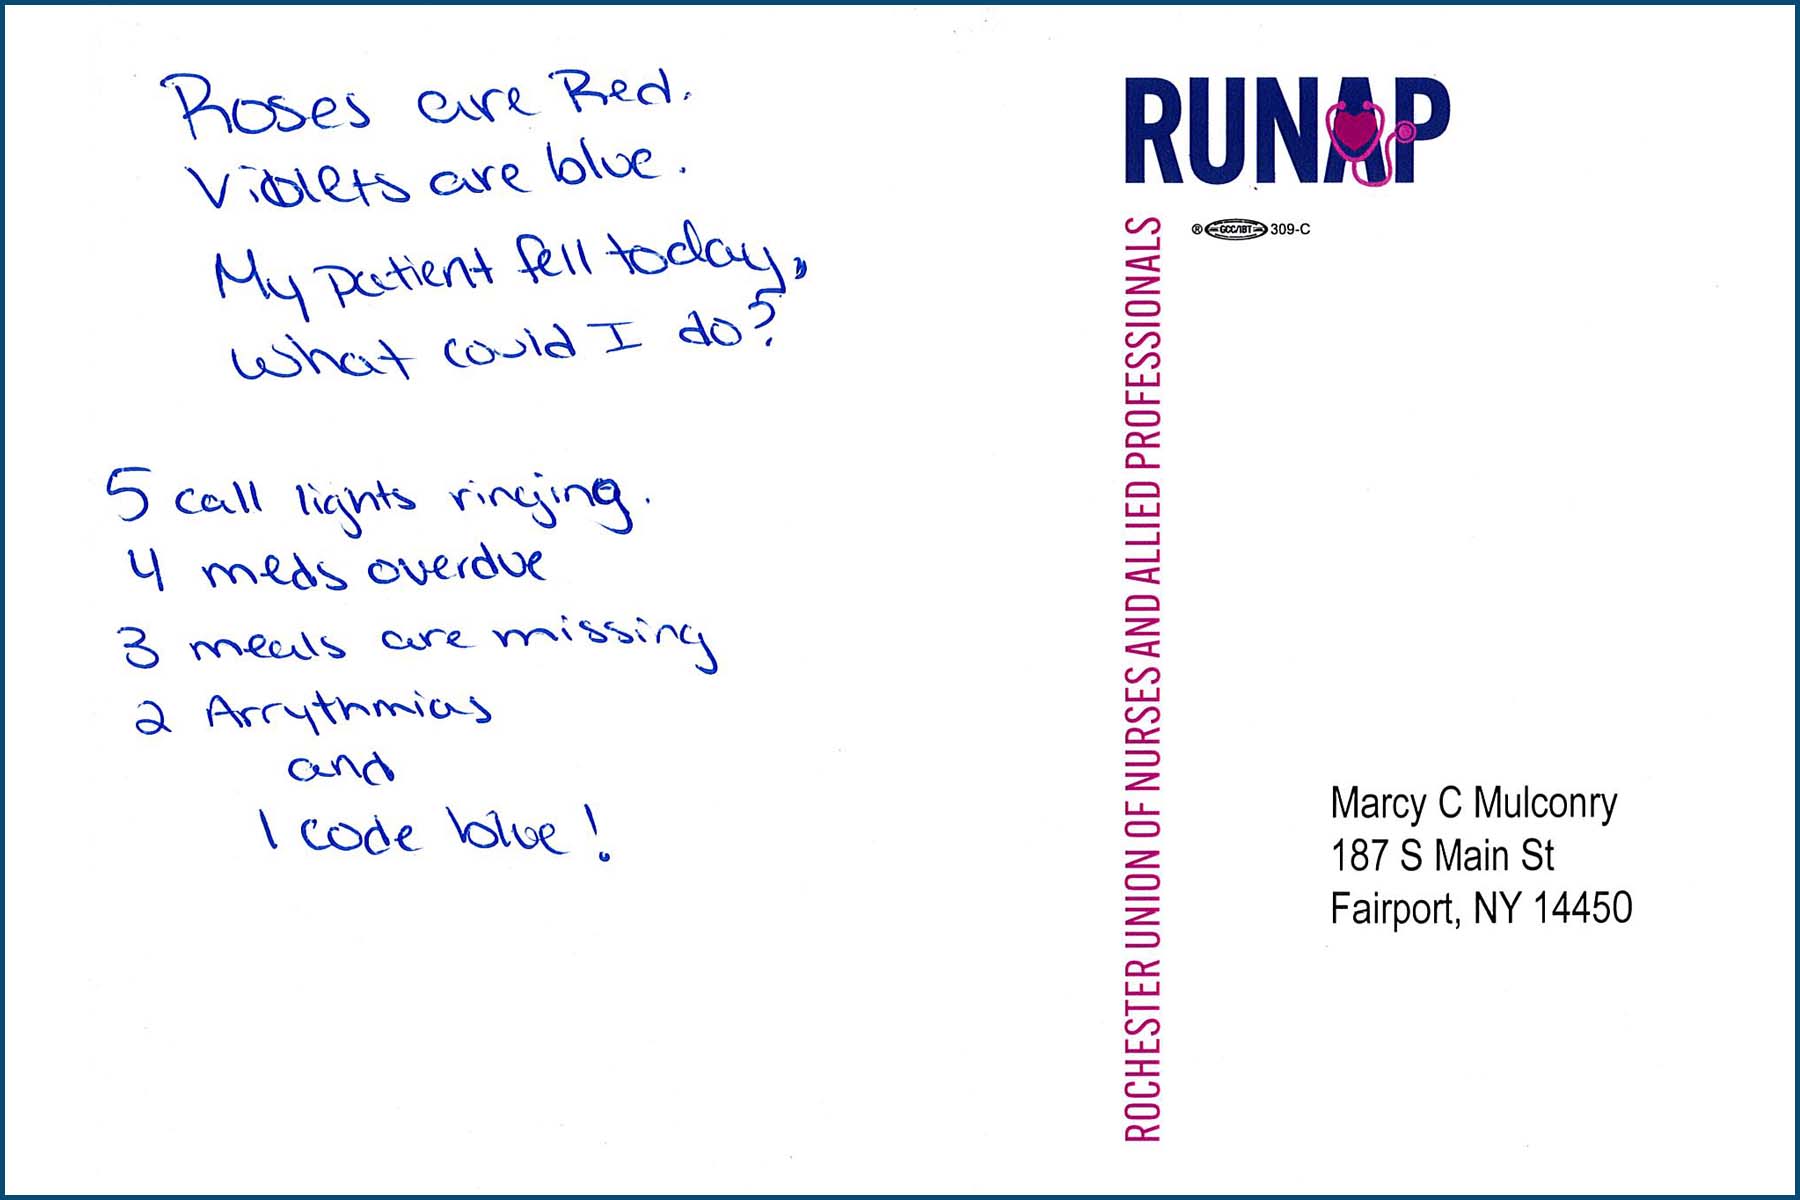 Roses are Red.
Violets are blue.
My patient fell today,
what could I do?
5 call lights ringing.
4 meds overdue
3 meals are missing
2 Arrythmias
and
1 code blue!
RUNAP
® GCC/IBT 309-C
ROCHESTER UNION OF NURSES AND ALLIED PROFESSIONALS
Marcy C Mulconry
187 S Main St
Fairport, NY 14450